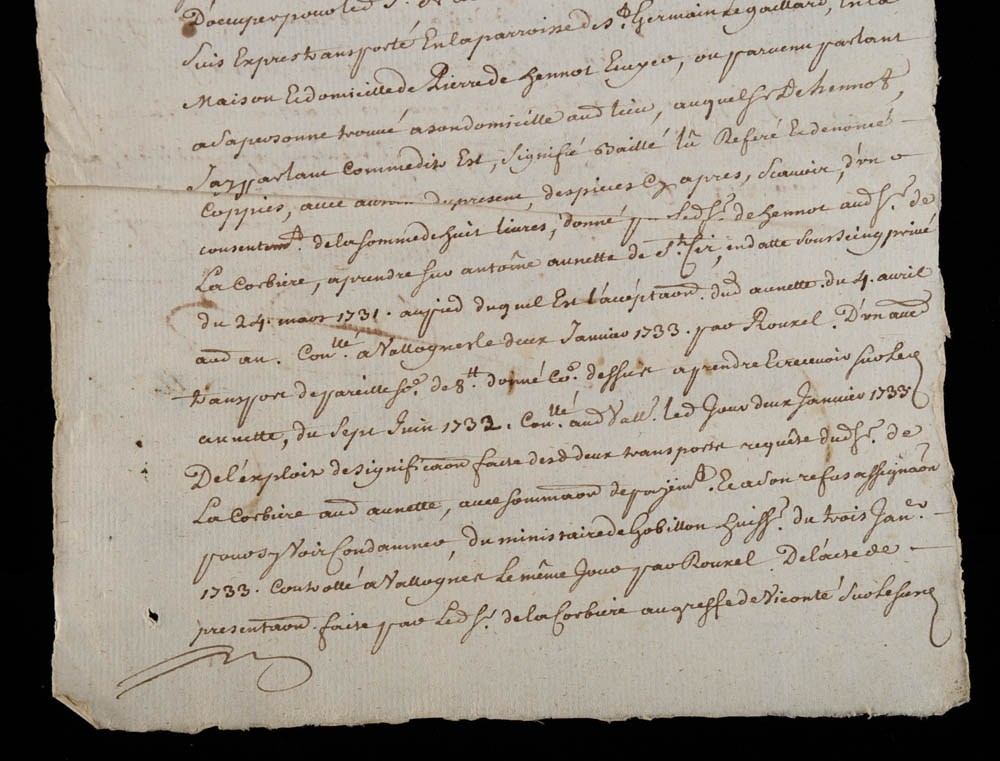 D'occuper pour led. Sr.
suis Expres transporté En la parroisse de St. Germain Le gaillard, En la
Maison Et domicille de Pierre de hennot Ecuyer, ou parvenu parlant
a sa personne trouvé a son domicille aud lieu, auquel Sr. De hennot,
J'ay parlant Comme dit Est, signifié Baillé lû Referé Et denoncé
Coppies, avec autant du present, des pieces cy apres, scavoir, d'vn
consentemt. de la somme de huit livres, donné par led. Sr. de hennot aud Sr. de
La Corbiere, a prendre sur antoine aunette de St. Cir, en datte sous seing privé
du 24. mars 1731. au pied duquel Est l'accéptaon. dud aunette. du 4. avril
aud an. Conllé. a Vallognes le deux Janvier 1733. par Rouxel. D'vn autre
transport de pareille Se. de 8tt. donné Co. dessus a prendre Et recevoir sur led
aunette, du sept Juin 1732. Conllé. aud Vall. led Jour deux Janvier 1733.
De l'exploit de significaon faite desd deux transports requête dud Sr. de
La Corbiere aud aunette, avec sommaon de payemt. Et a son refus assignaon
pour s'y Voir Condamner, du ministaire de Gobillon huissr. du trois Janer.
1733. Controllé a Vallognes Le même Jour par Rouxel. De l'acte de
presentaon. faite par Led Sr. de la Corbiere au greffe de Viconté sur Le